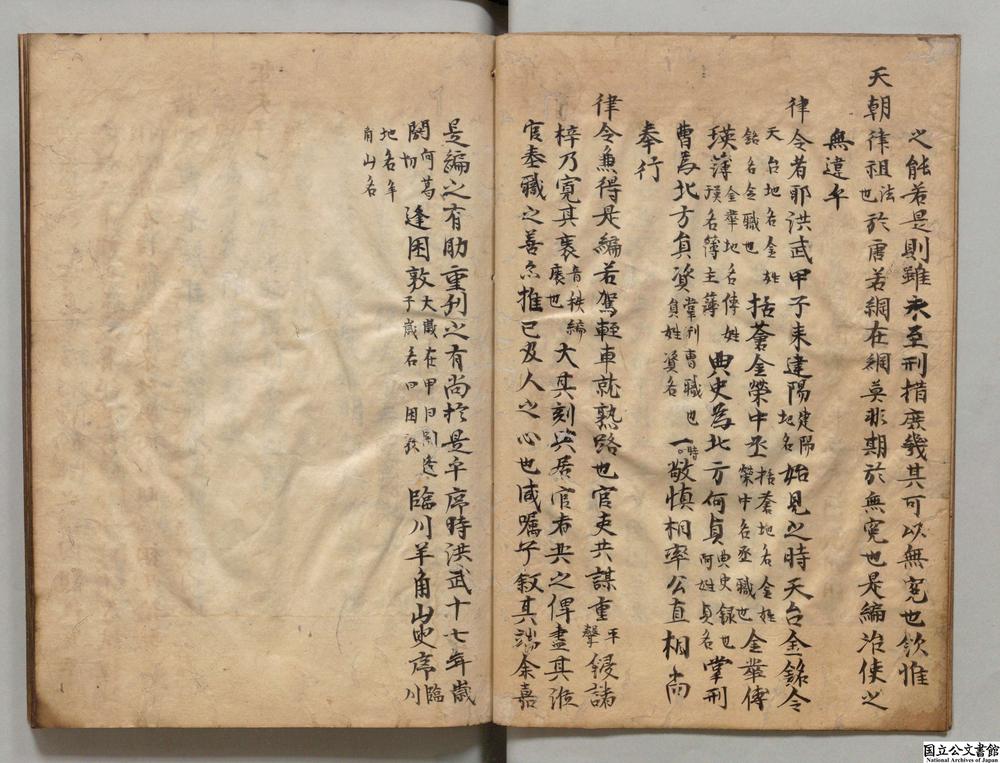 之能若是則雖未至刑措庶幾其可以無冤也欽惟
天朝律祖法也於唐若綱在綱莫非期於無冤也是編冶使之
無違牟
律令者耶洪武甲子来建陽建陽地名始見之時天台金銘令
天台地名金姓銘名令職也括蒼金榮中丞括蒼地名金姓榮中名丞職也金華傅
瑛薄金華地名傅姓瑛名簿主薄典史為北方何貞典史録也何姓貞名掌刑
曹為北方貟資掌刑曹職也貟姓資名一時敬慎相率公直相尚
奉行
律令兼得是編若駕輕車就熟路也官吏共謀重平聲鋟諸
梓乃寛其袠音秩編袠也大其刻與居官者共之俾盡其涖
官奉職之善亦推已及人之心也咸嘱予叙其端余嘉
是編之有助重刋之有尚扵是乎席時洪武十七年歳
閼何葛切逢困敦大歳在甲曰閼逢子歳名曰困敦臨川羊角山叟席臨川
地名羊角山名
国立公文書館
National Archives of Japan